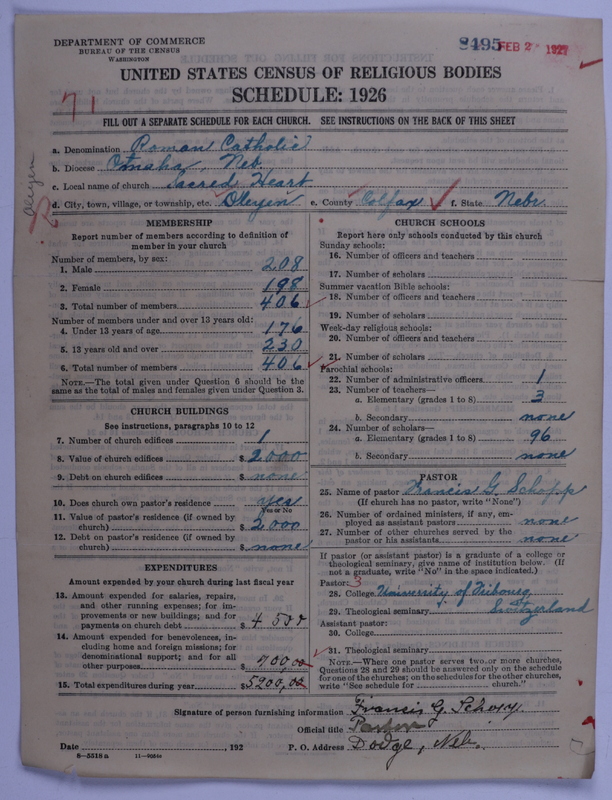 DEPARTMENT OF COMMERCE
BUREAU OF THE CENSUS
WASHINGTON
8495 FEB 2 1927
UNITED STATES CENSUS OF RELIGIOUS BODIES
SCHEDULE: 1926
71
FILL OUT A SEPARATE SCHEDULE FOR EACH CHURCH. SEE INSTRUCTIONS ON THE BACK OF THIS SHEET
a. Denomination Roman Catholic
b. Diocese Omaha, Neb.
c. Local name of church Sacred Heart
d. City, town, village, or township, etc. Oleyen e. County Colfax f. State Nebr.
Oleyen
MEMBERSHIP
Report number of members according to definition of
member in your church
Number of members, by sex:
1. Male 208
2. Female 198
3. Total number of members 406
Number of members under and over 13 years old:
4. Under 13 years of age 176
5. 13 years old and over 230
6. Total number of members 406
NOTE.—The total given under Question 6 should be the
same as the total of males and females given under Question 3.
CHURCH BUILDINGS
See instructions, paragraphs 10 to 12
7. Number of church edifices 1
8. Value of church edifices $ 2000
9. Debt on church edifices $ none
10. Does church own pastor's residence yes
Yes or No
11. Value of pastor's residence (if owned by
church) $ 2000
12. Debt on pastor's residence (if owned by
church) $ none
EXPENDITURES
Amount expended by your church during last fiscal year
13. Amount expended for salaries, repairs,
and other running expenses; for im-
provements or new buildings; and for
payments on church debt $ 4500
14. Amount expended for benevolences, in-
cluding home and foreign missions; for
denominational support; and for all
other purposes $ 700,00
15. Total expenditures during year $ 5200,00
CHURCH SCHOOLS
Report here only schools conducted by this church
Sunday schools:
16. Number of officers and teachers
17. Number of scholars
Summer vacation Bible schools:
18. Number of officers and teachers
19. Number of scholars
Week-day religious schools:
20. Number of officers and teachers
21. Number of scholars
Parochial schools:
22. Number of administrative officers 1
23. Number of teachers—
a. Elementary (grades 1 to 8) 3
b. Secondary none
24. Number of scholars—
a. Elementary (grades 1 to 8) 96
b. Secondary none
PASTOR
25. Name of pastor Francis G. Schopp
(If church has no pastor, write "None")
26. Number of ordained ministers, if any, em-
ployed as assistant pastors none
27. Number of other churches served by the
pastor or his assistants none
If pastor (or assistant pastor) is a graduate of a college or
theological seminary, give name of institution below. (If
not a graduate, write "No" in the space indicated.)
Pastor: 3
28. College University of Fribourg
29. Theological seminary Switzerland
Assistant pastor:
30. College
31. Theological seminary
NOTE.—Where one pastor serves two or more churches,
Questions 28 and 29 should be answered only on the schedule
for one of the churches; on the schedules for the other churches,
write "See schedule for church."
Signature of person furnishing information Francis G.
Official title Pastor
Date , 192 P. O. Address Dodge, Neb.
8-5518a 11-9084